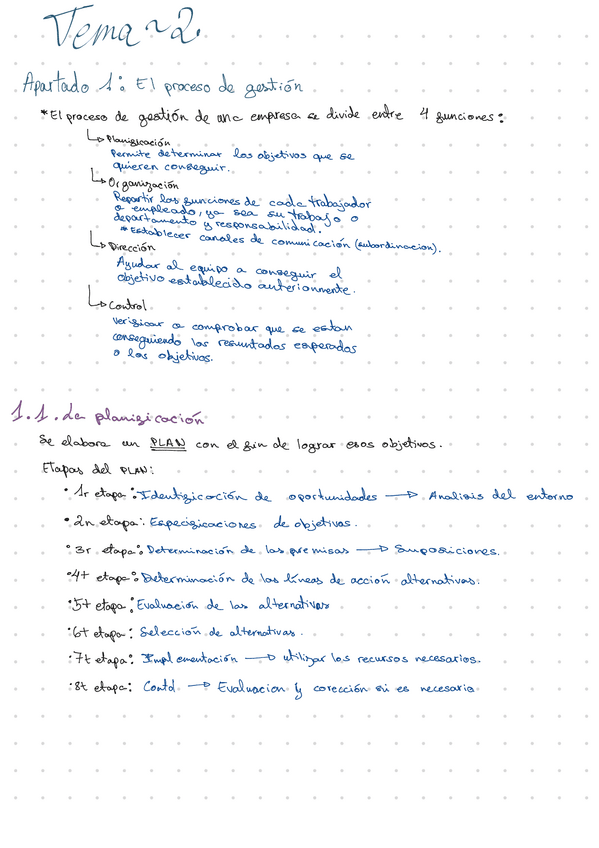 Tema ~ 2.
Apartado 1: El proceso de gestión
* El proceso de gestión de una empresa se divide entre 4 funciones:
↳ Planificación
Permite determinar los objetivos que se
quieren conseguir.
↳ Organización
Repartir las funciones de cada trabajador
o empleado, ya sea su trabajo o
departamento y responsabilidad.
* Establecer canales de comunicación (subordinacion).
↳ Dirección
Ayudar al equipo a conseguir el
objetivo establecido anterionmente.
↳ Control
verificar o comprobar que se estan
conseguiendo los resuntados esperados
o los objetivos.
1.1. La planificación
Se elabora un PLAN con el fin de lograr esos objetivos.
Etapas del PLAN:
• 1r etapa: Identificación de oportunidades → Analisis del entorno
• 2n etapa: Especificaciones de objetivos.
• 3r etapa: Determinación de las premisas → Suposiciones.
• 4t etapa: Determinación de las líneas de acción alternativas.
• 5t etapa: Evaluación de las alternativas
• 6t etapa: Selección de alternativas.
• 7t etapa: Implementación → utilizar los recursos necesarios.
• 8t etapa: → Evaluacion y corección si es necesario